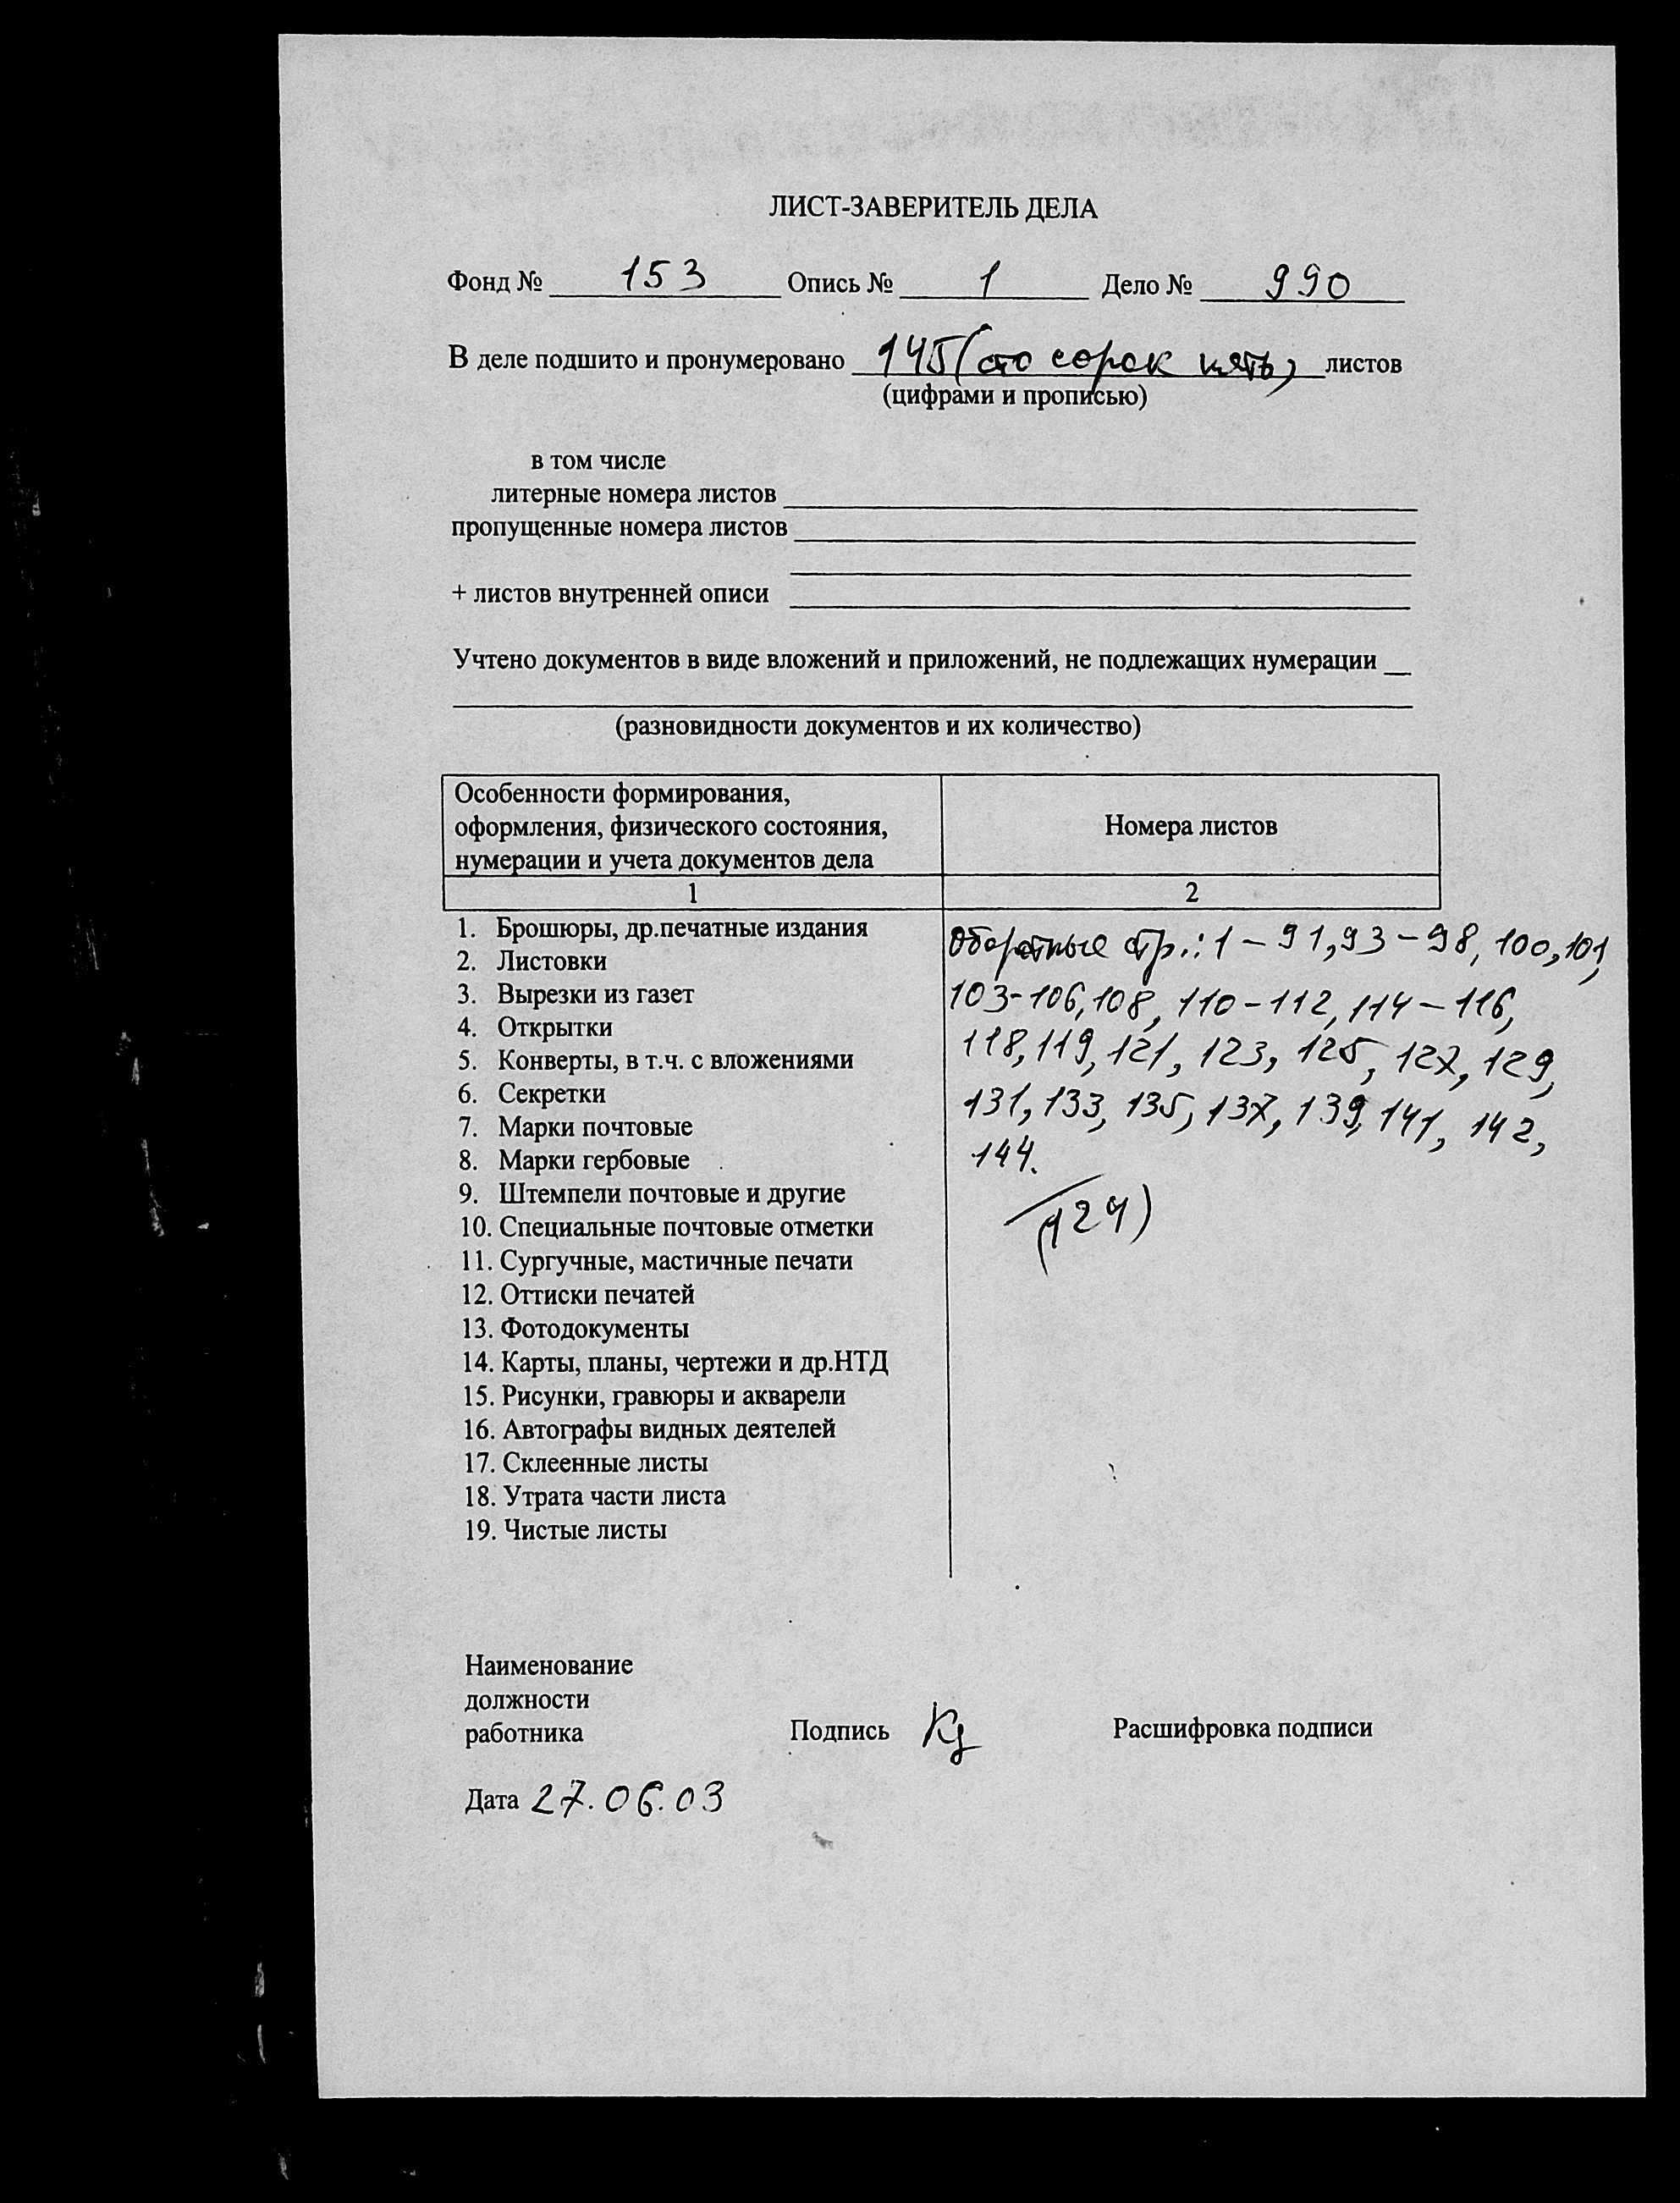 ЛИСТ-ЗАВЕРИТЕЛЬ ДЕЛА
Фонд № 153 Опись № 1 Дело № 990
В деле подшито и пронумеровано 145 (сто сорок пять) листов
(цифрами и прописью)
в том числе
литерные номера листов
пропущенные номера листов
+ листов внутренней описи
Учтено документов в виде вложений и приложений, не подлежащих нумерации
(разновидности документов и их количество)
Особенности формирования,
оформления, физического состояния,
нумерации и учета документов дела
Номера листов
1 2
1. Брошюры, др.печатные издания
2. Листовки
3. Вырезки из газет
4. Открытки
5. Конверты, в т.ч. с вложениями
6. Секретки
7. Марки почтовые
8. Марки гербовые
9. Штемпели почтовые и другие
10. Специальные почтовые отметки
11. Сургучные, мастичные печати
12. Оттиски печатей
13. Фотодокументы
14. Карты, планы, чертежи и др.НТД
15. Рисунки, гравюры и акварели
16. Автографы видных деятелей
17. Склеенные листы
18. Утрата части листа
19. Чистые листы
Оборотные стр.: 1 – 91, 93 – 98, 100, 101,
103-106, 108, 110 – 112, 114 – 116,
118, 119, 121, 123, 125, 127, 129,
131, 133, 135, 137, 139, 141, 142,
144.
(124)
Наименование
должности
работника Подпись Расшифровка подписи
Дата 27.06.03